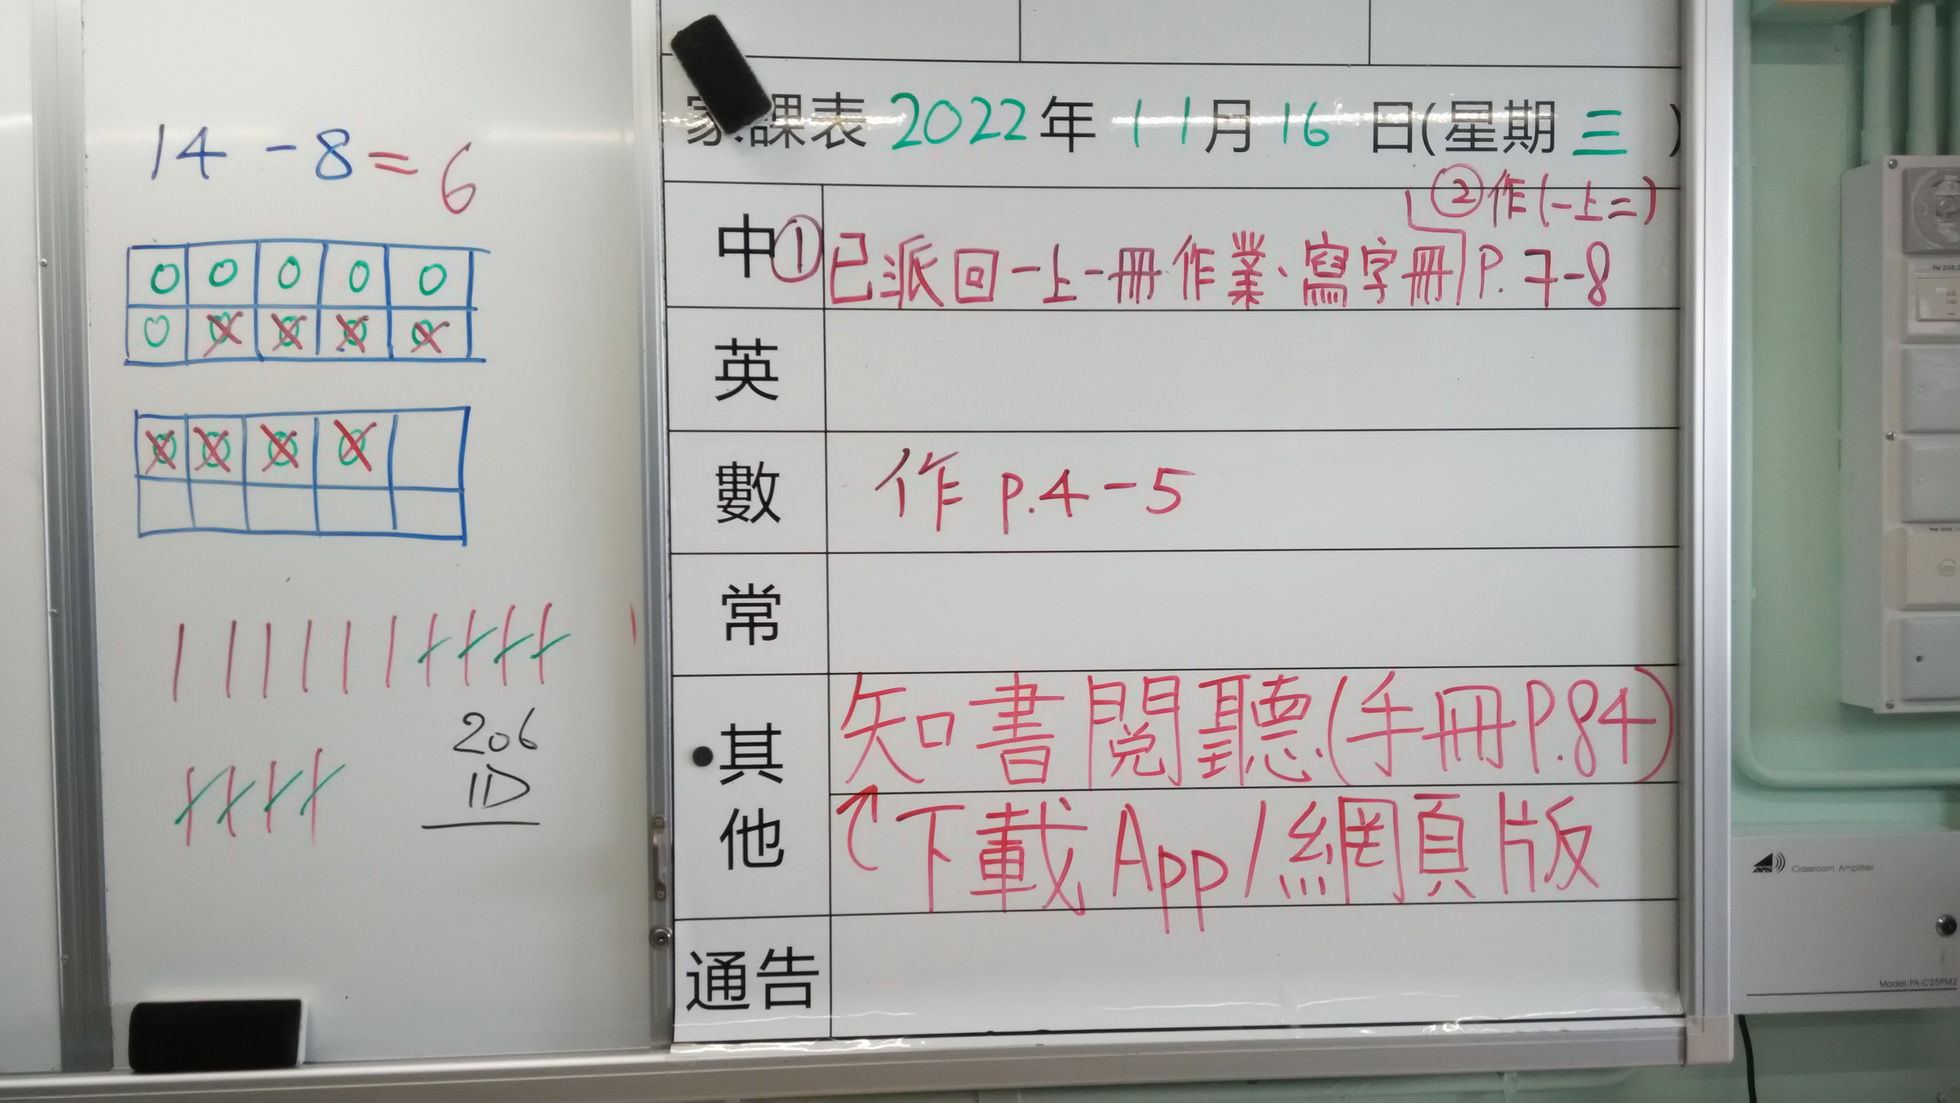 14 - 8 = 6
206
1D
家課表 2022年 11月 16日(星期三)
中 ①已派回一上一冊作業、寫字冊
②作(一上二) P.7-8
英
數 作 p.4-5
常
其他 知書閱聽(手冊P.84)
下載App/網頁版
通告
Classroom Amplifier
Model:PA-C25PM2